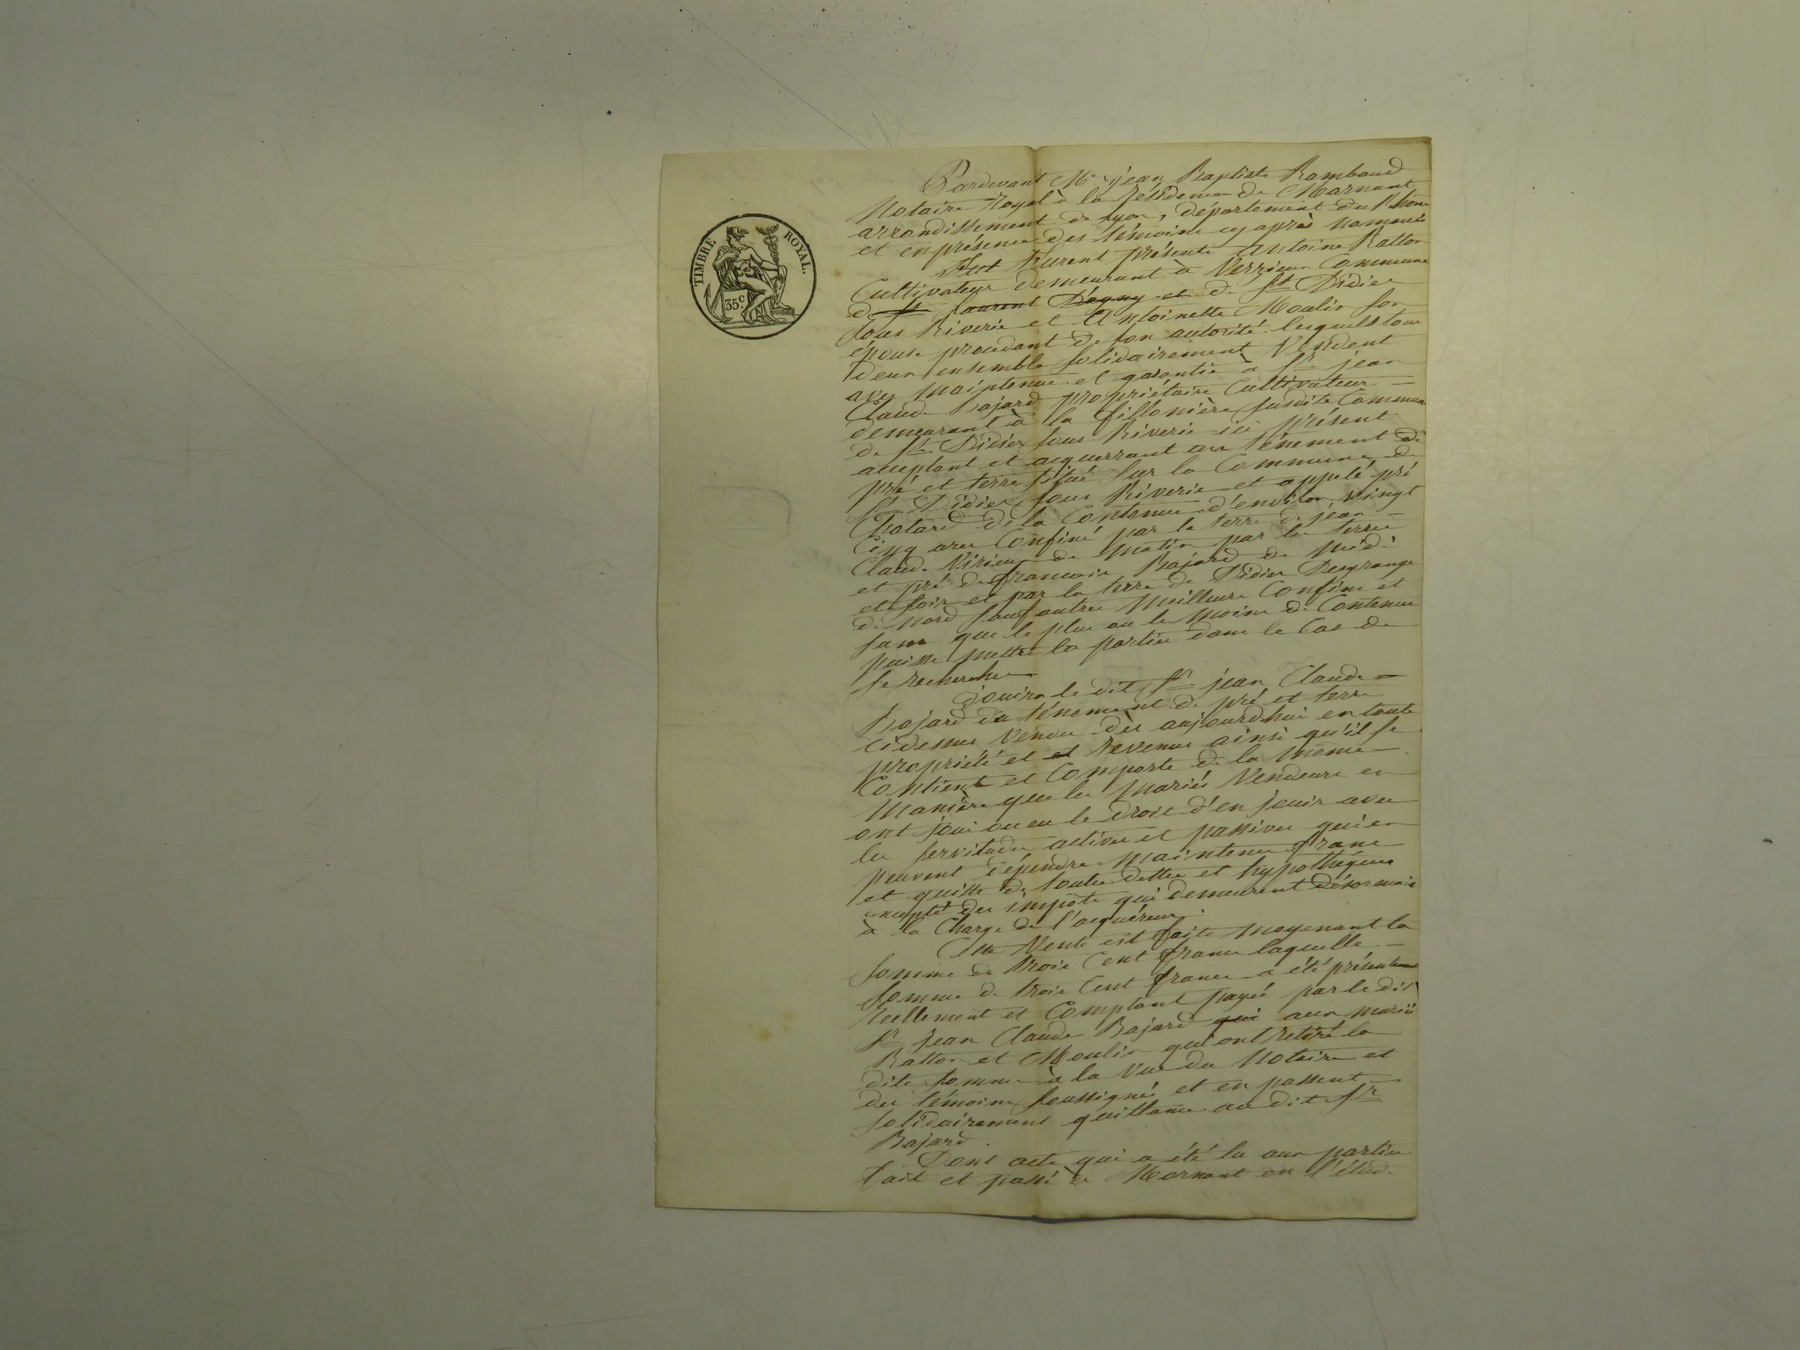 TIMBRE ROYAL.
35c
Pardevant Me jean Baptiste Rambaud
Notaire Royal à la Résidence de Mornant
arrondissement de Lyon, département du Rhone
et en présence des témoins cy après nommés
furent présents Antoine Ratton
Cultivateur demeurant à Verzieu Commune
d St Laurent Dagny et de St Didier
sous Riverie et Antoinette Moulin son
épouse procedant de son autorité lesquels tous
deux ensemble solidairement Vendent
avec maintenue et garantie à Sr jean
Claude Bajard propriétaire Cultivateur
demeurant à la susdite Commune
de St Didier sous Riverie ici présent
acceptant et acquerrant un ténement de
pré et terre situé sur la Commune de
St Didier sous Riverie et appelé pré
Chatard de la Contenue d'environ vingt
Cinq ares Confiné par la terre de jean
Claude Virieu de matin par les terres
et pré de francois Bajard de midi
et soir et par la terre de Didier Desgrange
de nord sauf autres meilleurs Confins et
sans que le plus ou le moins de Contenue
puisse mettre les parties dans le Cas de
se rechercher
jouira le dit Sr jean Claude
Bajard du ténement de pré et terre
cidessus vendu dès aujourdhui en toute
propriété et et revenus ainsi qu'il se
Contient et Comporte de la meme
manière que les mariés Vendeurs en
ont joui ou eu le droit d'en jouir avec
les servitudes actives et passives qui en
peuvent dépendre maintenu franc
et quitte de toutes dettes et hypothèques
excepté des impôts qui demeurent désormais
à la Charge de l'acquéreur.
Cette Vente est faite moyenant la
somme de trois Cent francs laquelle
somme de trois Cent francs a été présentement
réellement et Comptant payée par le dit
Sr jean Claude Bajard qui aux mariés
Ratton et Moulin qui ont retiré la
dite somme à la vue du Notaire et
des témoins soussignés et en passent
solidairement quittance au dit Sr
Bajard.
Dont acte qui a été lu aux parties
fait et passé à Mornant en l'étude